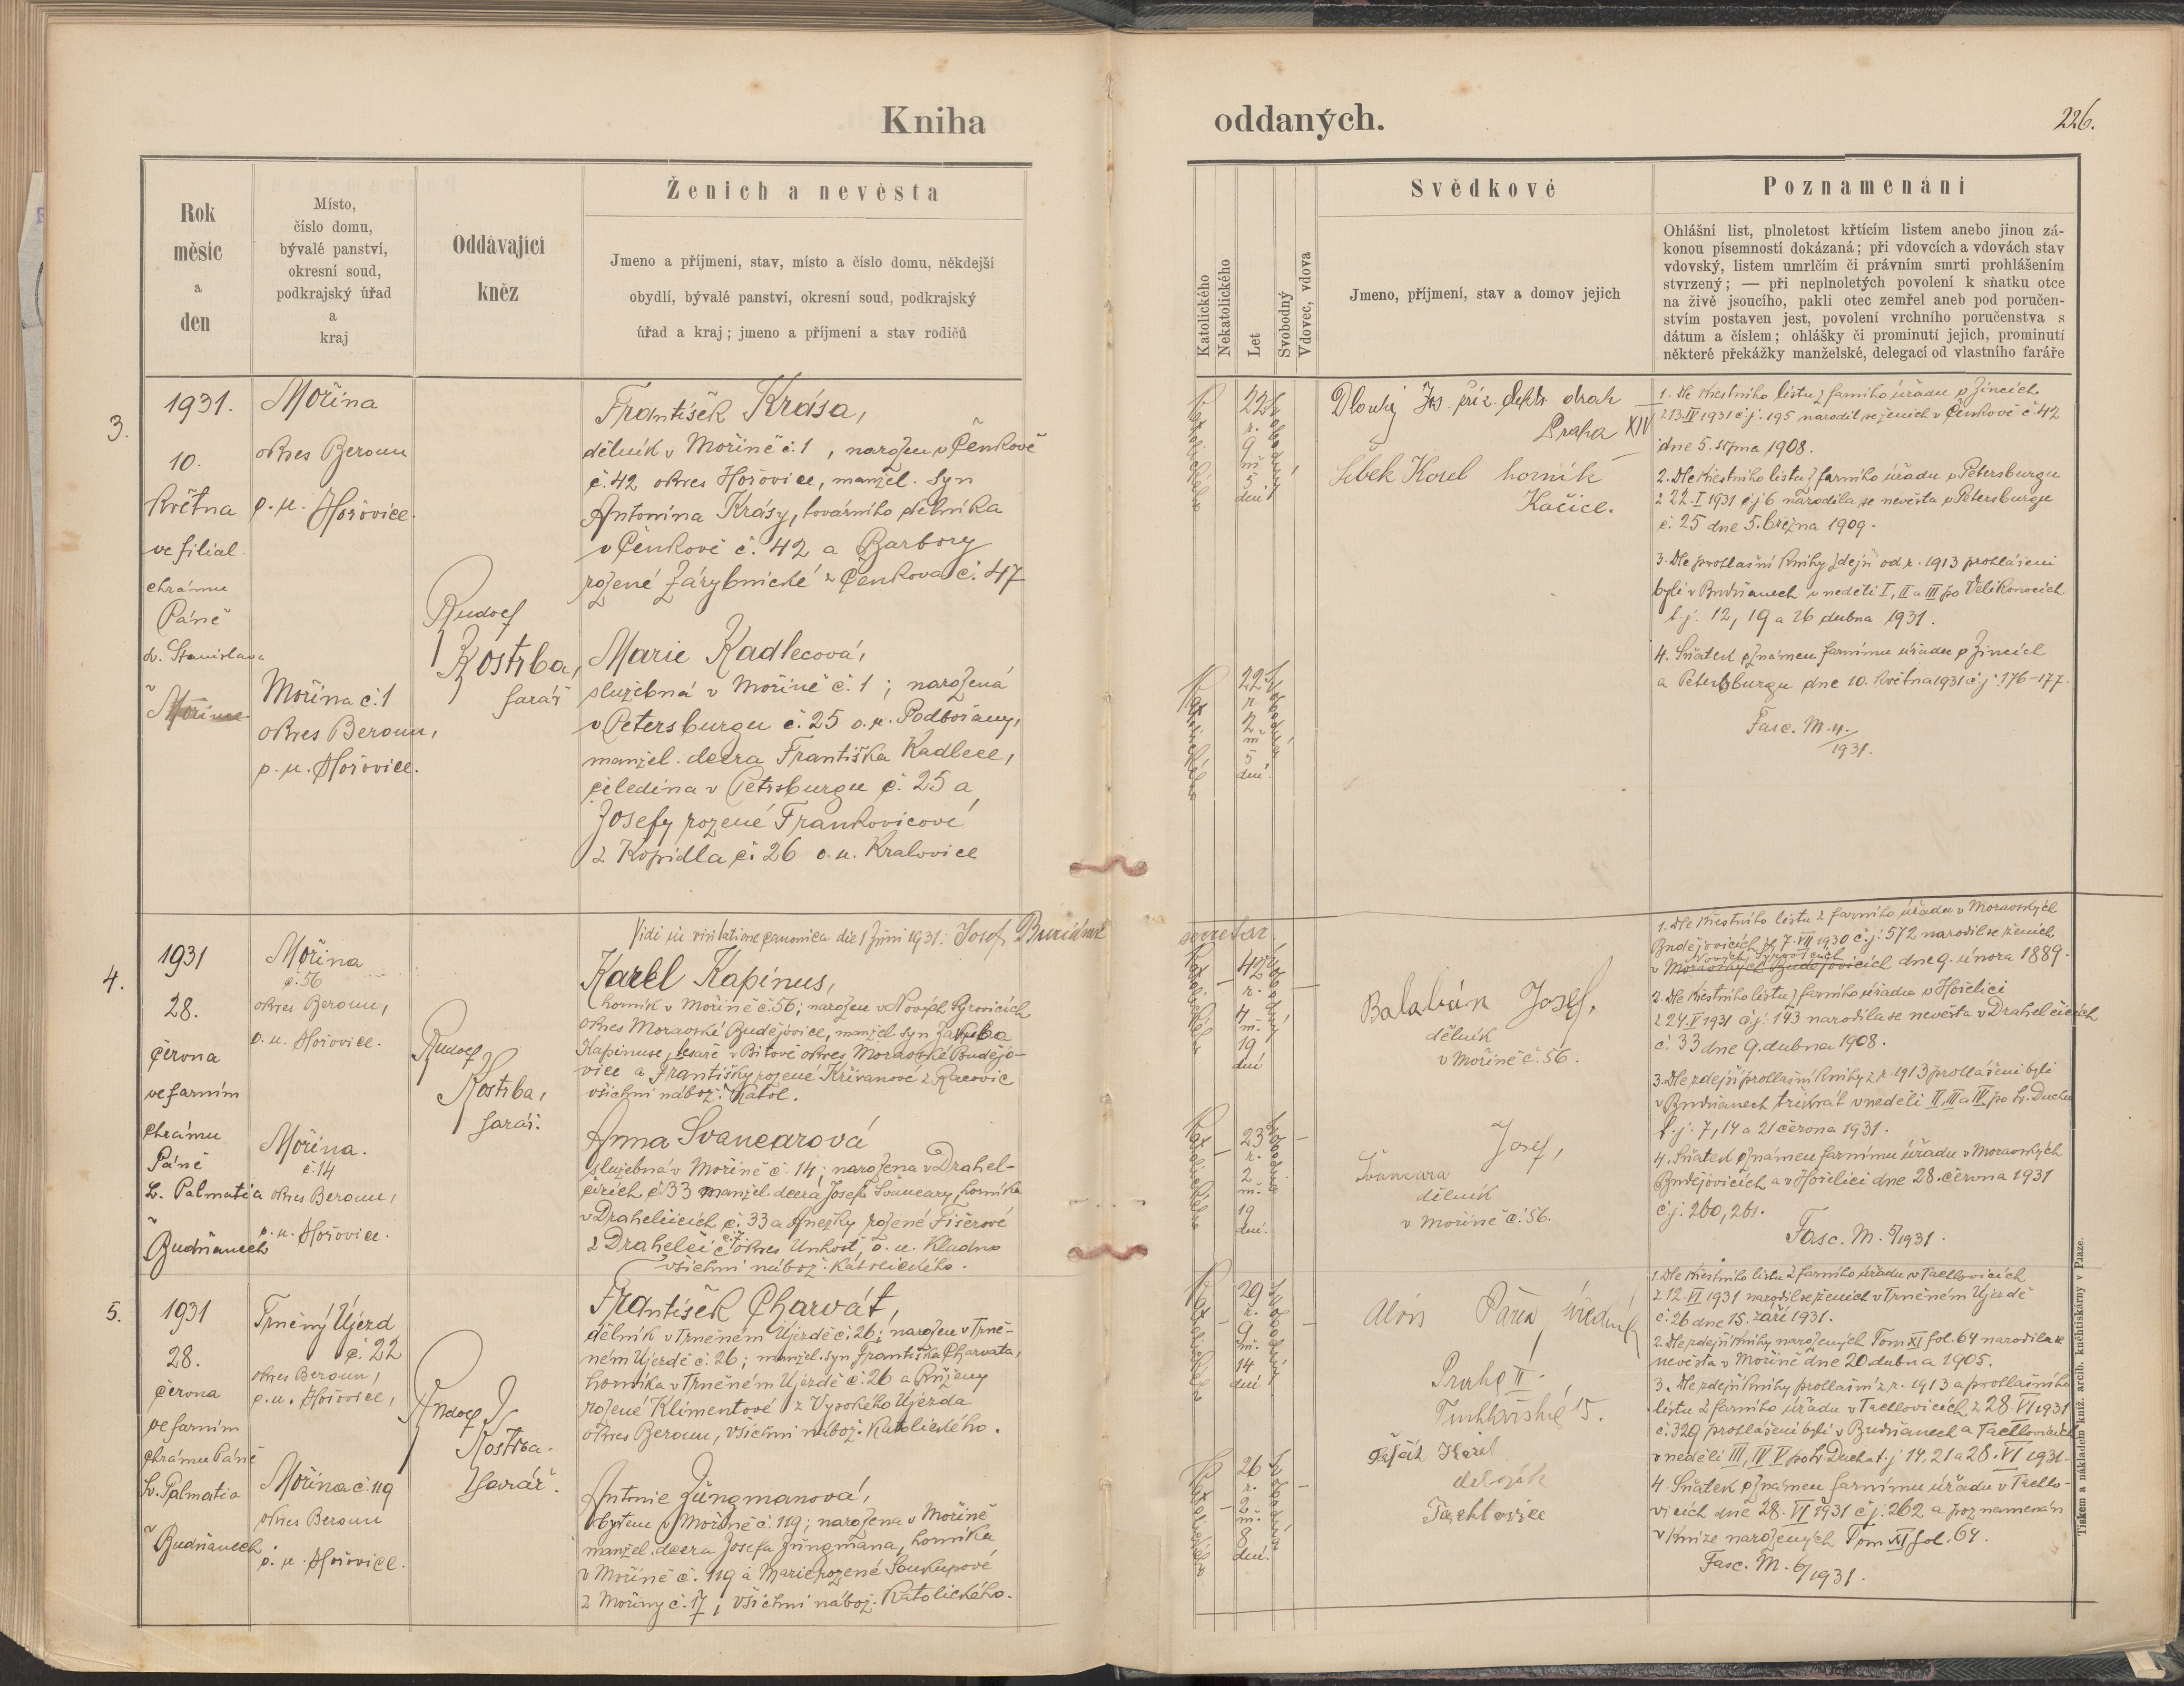 Kniha
oddaných.
226.
Rok
měsíc
a
den
Místo,
číslo domu,
bývalé panství,
okresní soud,
podkrajský úřad
a
kraj
Oddávající
kněz
Ženich a nevěsta
Jmeno a příjmení, stav, místo a číslo domu, někdejší
obydlí, bývalé panství, okresní soud, podkrajský
úřad a kraj; jmeno a příjmení a stav rodičů
Katolického
Nekatolického
Let
Svobodný
Vdovec, vdova
Svědkové
Jmeno, příjmení, stav a domov jejich
Poznamenání
Ohlášní list, plnoletost křtícím listem anebo jinou zá-
konou písemností dokázaná; při vdovcích a vdovách stav
vdovský, listem umrlčím či právním smrti prohlášením
stvrzený; — při neplnoletých povolení k sňatku otce
na živě jsoucího, pakli otec zemřel aneb pod poručen-
stvím postaven jest, povolení vrchního poručenstva s
dátum a číslem; ohlášky či prominutí jejich, prominutí
některé překážky manželské, delegací od vlastního faráře
3.
1931.
10.
května
ve filial.
chrámu
Páně
sv. Stanislava
v Mořině
Mořina
okres Beroun
o. u. Hořovice.
Mořina č. 1
okres Beroun,
o. u. Hořovice.
Rudolf
Kostrba,
farář
František Krása,
dělník v Mořině č. 1, narozen v Čenkově
č. 42 okres Hořovice, manžel. syn
Antonína Krásy, továrního dělníka
v Čenkově č. 42 a Barbory
rozené Zárybnické z Čenkova č. 47
Marie Kadlecová,
služebná v Mořině č. 1; narozená
v Petersburgu č. 25 o. u. Podbořany,
manžel. dcera Františka Kadlece,
čeledína v Petrsburgu č. 25 a
Josefy rozené Frankovicové
z Kopidla č. 26 o. u. Kralovice
Katolického
22
r.
9
m
5
dní
svobodný
Katolického
22
r
2
m
5
dní.
svobodná
Dlouhý Jos. říz. elektr. drah
Praha XIV
Šebek Karel horník
Kačice.
1. Dle křestního listu z farního úřadu v Jincích
z 13. IV 1931 č. j. 195 narodil se ženich v Čenkově č. 42
dne 5. srpna 1908.
2. Dle křestního listu z farního úřadu v Petersburgu
z 22. I 1931 č. j. 6 narodila se nevěsta v Petersburgu
č. 25 dne 5. března 1909.
3. Dle prohlašní knihy zdejší od r. 1913 prohlášeni
byli v Budňanech v neděli I, II a III po Velikonocích
t. j. 12, 19 a 26 dubna 1931.
4. Sňatek oznámen farnímu úřadu v Jincích
a Petersburgu dne 10. května 1931 č. j. 176–177.
Fasc. M. 4./1931.
Vidi in visitatione canonica die 1 Juni 1931. Josef
secretar.
4.
1931
28.
června
ve farním
chrámu
Páně
sv. Palmatia
v
Budňanech
Mořina
č. 56
okres Beroun,
o. u. Hořovice.
Mořina.
č. 14
okres Beroun,
o. u. Hořovice.
Rudolf
Kostrba,
farář.
Karel Kapinus,
horník v Mořině č. 56; narozen v Nových Syrovicích
okres Moravské Budějovice, manžel. syn Jakuba
Kapinuse, tesaře v Bítově okres Moravské Budějo-
vice a Františky rozené Křivanové z Racovic
všichni nábož. katol.
Anna Švancarová
služebná v Mořině č. 14; narozena v Drahel-
čicích č. 33 manžel. dcera Josefa Švancary, horníka
v Drahelčicích č. 33 a Anežky rozené Fišerové
z Drahelčic č. 7 okres Unhošť, o. u. Kladno
všichni nábož. katolického.
Katolického
42
r.
4
m.
19
dní
svobodný
Katolického
23
r.
2
m.
19
dní.
svobodná
Balabán Josef,
dělník
v Mořině č. 56.
Josef,
Švancara
dělník
v Mořině č. 56.
1. Dle křestního listu z farního úřadu v Moravských
Budějovicích ze 7. VII 1930 č. j. 572 narodil se ženich
Nových Syrovicích
v Moravských Budějovicích dne 9. února 1889.
2. Dle křestního listu z farního úřadu v Hořelici
z 24. V 1931 č. j. 143 narodila se nevěsta v Drahelčicích
č. 33 dne 9. dubna 1908.
3. Dle zdejší prohlašní knihy z r. 1913 prohlášeni byli
v Budňanech třikrát v neděli II, III a IV po sv. Duchu
t. j. 7, 14 a 21 června 1931.
4. Sňatek oznámen farnímu úřadu v Moravských
Budějovicích a v Hořelici dne 28. června 1931
č. j. 260, 261.
Fasc. M. 5/1931.
5.
1931
28.
června
ve farním
chrámu Páně
sv. Palmatia
v
Budňanech
Trněný Újezd
č. 22
okres Beroun,
o. u. Hořovice,
Mořina č. 119
okres Beroun
o. u. Hořovice.
Rudolf
Kostrba.
farář.
František Charvát,
dělník v Trněném Újezdě č. 26; narozen v Trně-
ném Újezdě č. 26; manžel. syn Františka Charvata,
horníka v Trněném Újezdě č. 26 a Růženy
rozené Klimentové z Vysokého Újezda
okres Beroun, všichni nábož. katolického.
Antonie Jungmanová,
bytem v Mořině č. 119; narozena v Mořině
manžel. dcera Josefa Jungmana, horníka
v Mořině č. 119 a Marie rozené Soukupové
z Mořiny č. 17, všichni nábož. katolického.
Katolického
29
r.
9
m.
14
dní
svobodný
Katolického
26
r.
2
m.
8
dní.
svobodná
Alois
Praha II.
15.
Karel
Tachlovice
1. Dle křestního listu z farního úřadu v Tachlovicích
z 12. VI 1931 narodil se ženich v Trněném Újezdě
č. 26 dne 15. září 1931.
2. Dle zdejší knihy narozených Tom XI fol. 64 narodila se
nevěsta v Mořině dne 20. dubna 1905.
3. Dle zdejší knihy prohlašní z r. 1913 a prohlašního
listu z farního úřadu v Tachlovicích z 28. VI 1931
č. 329 prohlášeni byli v Budňanech a Tachlovicích
v neděli III, IV V po sv. Duchu t. j. 14, 21 a 28. VI 1931.
4. Sňatek oznámen farnímu úřadu v Tachlo-
vicích dne 28. VI 1931 č. j. 262 a poznamenán
v knize narozených Tom XI fol. 64.
Fasc. M. 6/1931.
Tiskem a nákladem kníž. arcib. knihtiskárny v Praze.